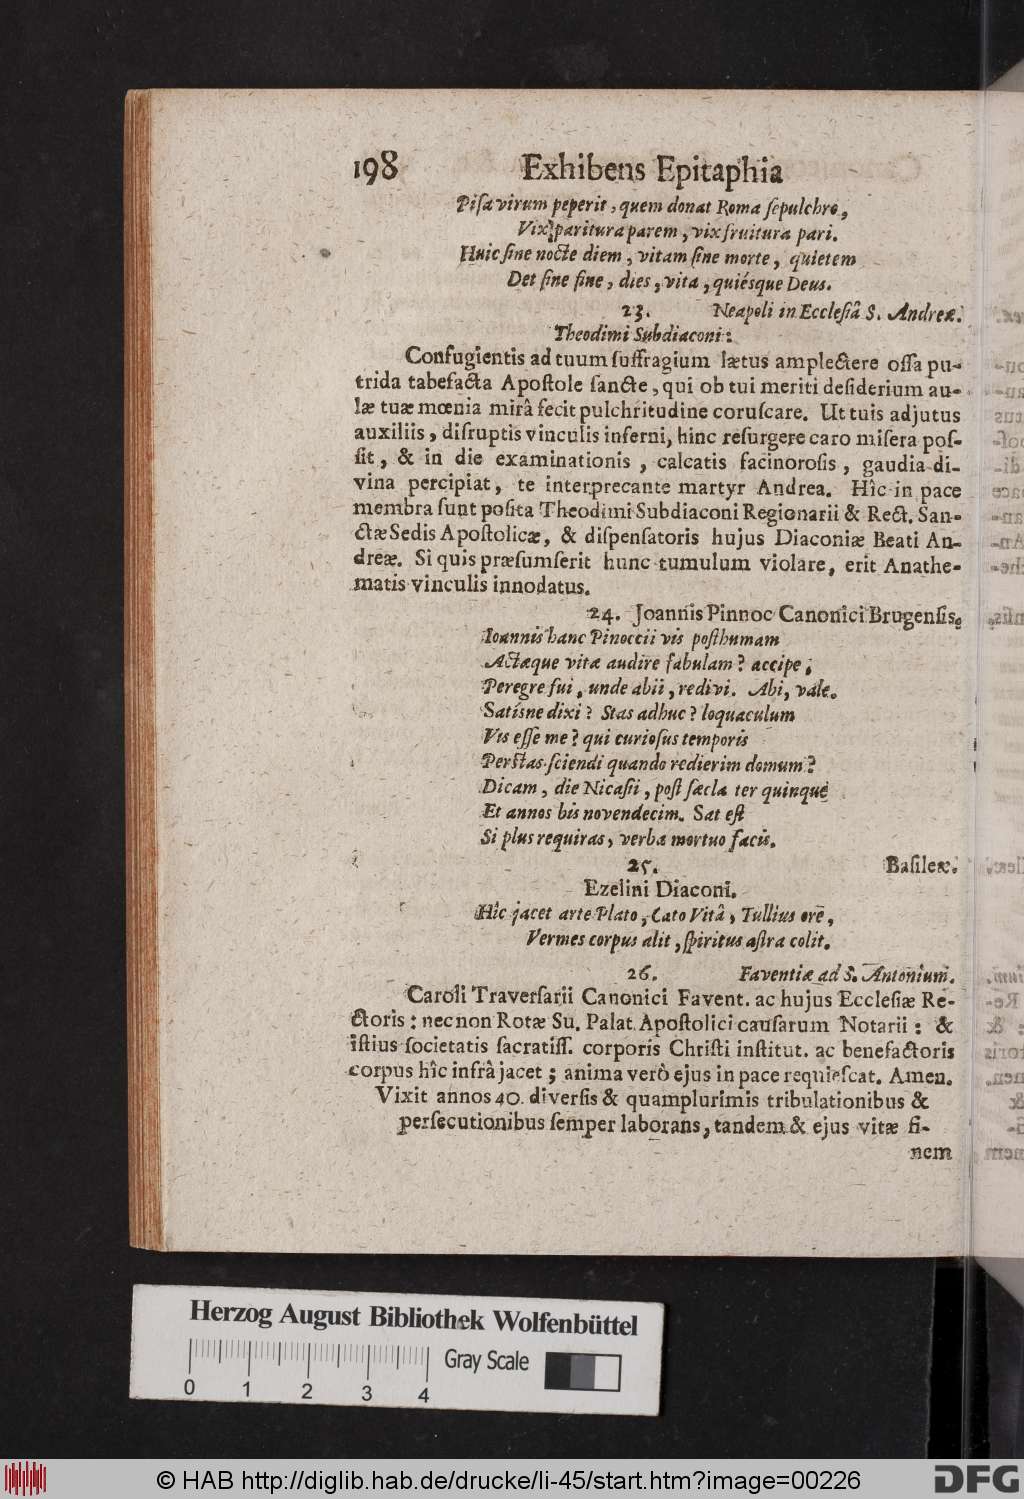 198 Exhibens Epitaphia
Pisa virum peperit, quem donat Roma sepulchro,
Vix paritura parem, vix fruitura pari.
Huic sine nocte diem, vitam sine morte, quietem
Det sine fine, dies, vita, quiésque Deus.
23. Neapoli in Ecclesiâ S. Andreæ.
Theodimi Subdiaconi:
Confugientis ad tuum suffragium lætus amplectere ossa pu-
trida tabefacta Apostole sancte, qui ob tui meriti desiderium au-
læ tuæ mœnia mirâ fecit pulchritudine coruscare. Ut tuis adjutus
auxiliis, disruptis vinculis inferni, hinc resurgere caro misera pos-
sit, & in die examinationis, calcatis facinorosis, gaudia di-
vina percipiat, te interprecante martyr Andrea. Hîc in pace
membra sunt posita Theodimi Subdiaconi Regionarii & Rect. San-
ctæ Sedis Apostolicæ, & dispensatoris hujus Diaconiæ Beati An-
dreæ. Si quis præsumserit hunc tumulum violare, erit Anathe-
matis vinculis innodatus.
24. Joannis Pinnoc Canonici Brugensis.
Ioannis hanc Pinoccii vis posthumam
Actæque vitæ audire fabulam? accipe;
Peregre fui, unde abii, redivi. Abi, vale.
Satísne dixi? Stas adhuc? loquaculum
Vis esse me? qui curiosus temporis
Perstas sciendi quando redierim domum?
Dicam, die Nicasii, post sæcla ter quinque
Et annos bis novendecim. Sat est
Si plus requiras, verba mortuo facis.
25. Basileæ.
Ezelini Diaconi.
Hîc jacet arte Plato, Cato Vitâ, Tullius ore,
Vermes corpus alit, spiritus astra colit.
26. Faventiæ ad S. Antonium.
Caroli Traversarii Canonici Favent. ac hujus Ecclesiæ Re-
ctoris: nec non Rotæ Su. Palat. Apostolici causarum Notarii: &
istius societatis sacratiss. corporis Christi institut. ac benefactoris
corpus hîc infrâ jacet; anima verò ejus in pace requiescat. Amen.
Vixit annos 40. diversis & quamplurimis tribulationibus &
persecutionibus semper laborans, tandem & ejus vitæ fi-
nem
Herzog August Bibliothek Wolfenbüttel
0 1 2 3 4 Gray Scale
© HAB http://diglib.hab.de/drucke/li-45/start.htm?image=00226
DFG